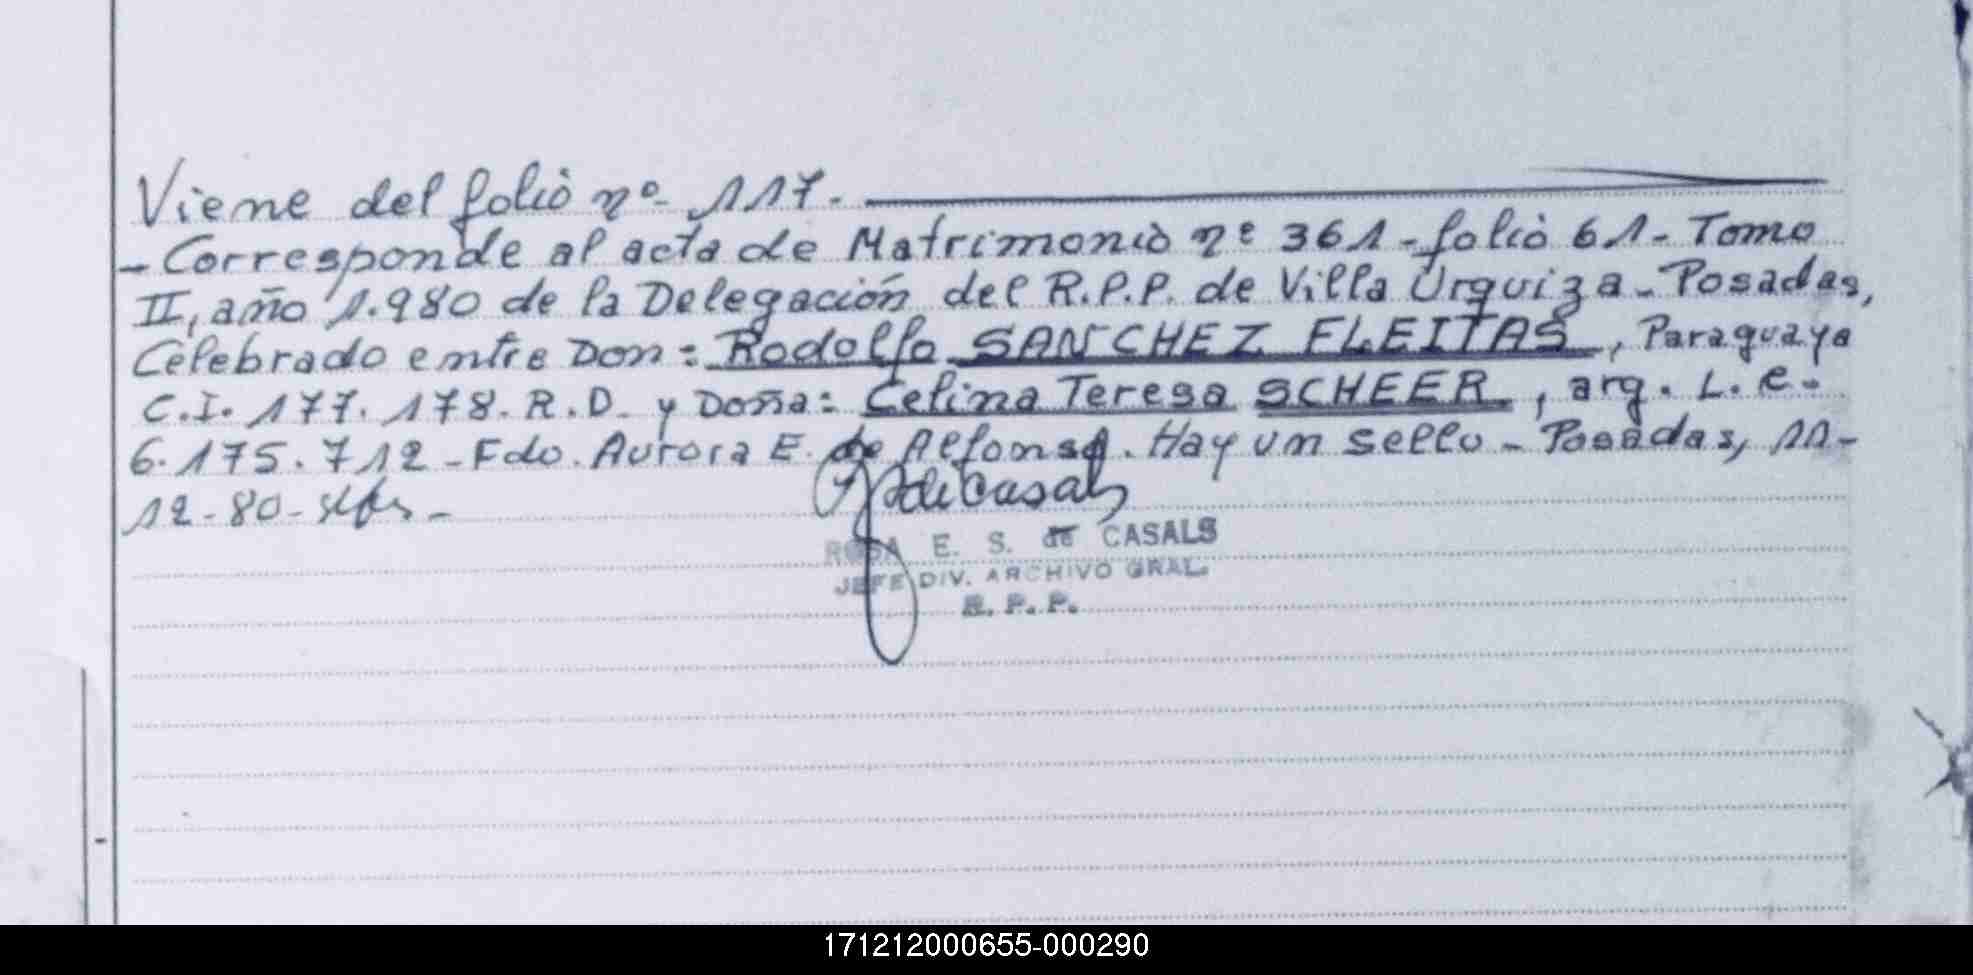 Viene del folio nº 117.
- Corresponde al acta de Matrimonio nº 361 - folio 61 - Tomo
II, año 1.980 de la Delegación del R.P.P. de Villa Urquiza - Posadas,
Celebrado entre Don: Rodolfo SANCHEZ FLEITAS, Paraguaya
C.I. 177.178. R.D. y Doña: Celina Teresa SCHEER, arg. L.e.
6.175.712 - Fdo. Aurora E. de Alfonso. Hay un sello - Posadas, 11-
12-80-
deCasals
ROSA E. S. de CASALS
JEFE DIV. ARCHIVO GRAL.
R. P. P.
171212000655-000290